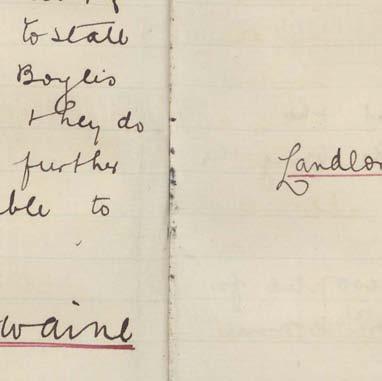 to State
Boylis
they do
further
ble to
waine
Landlor